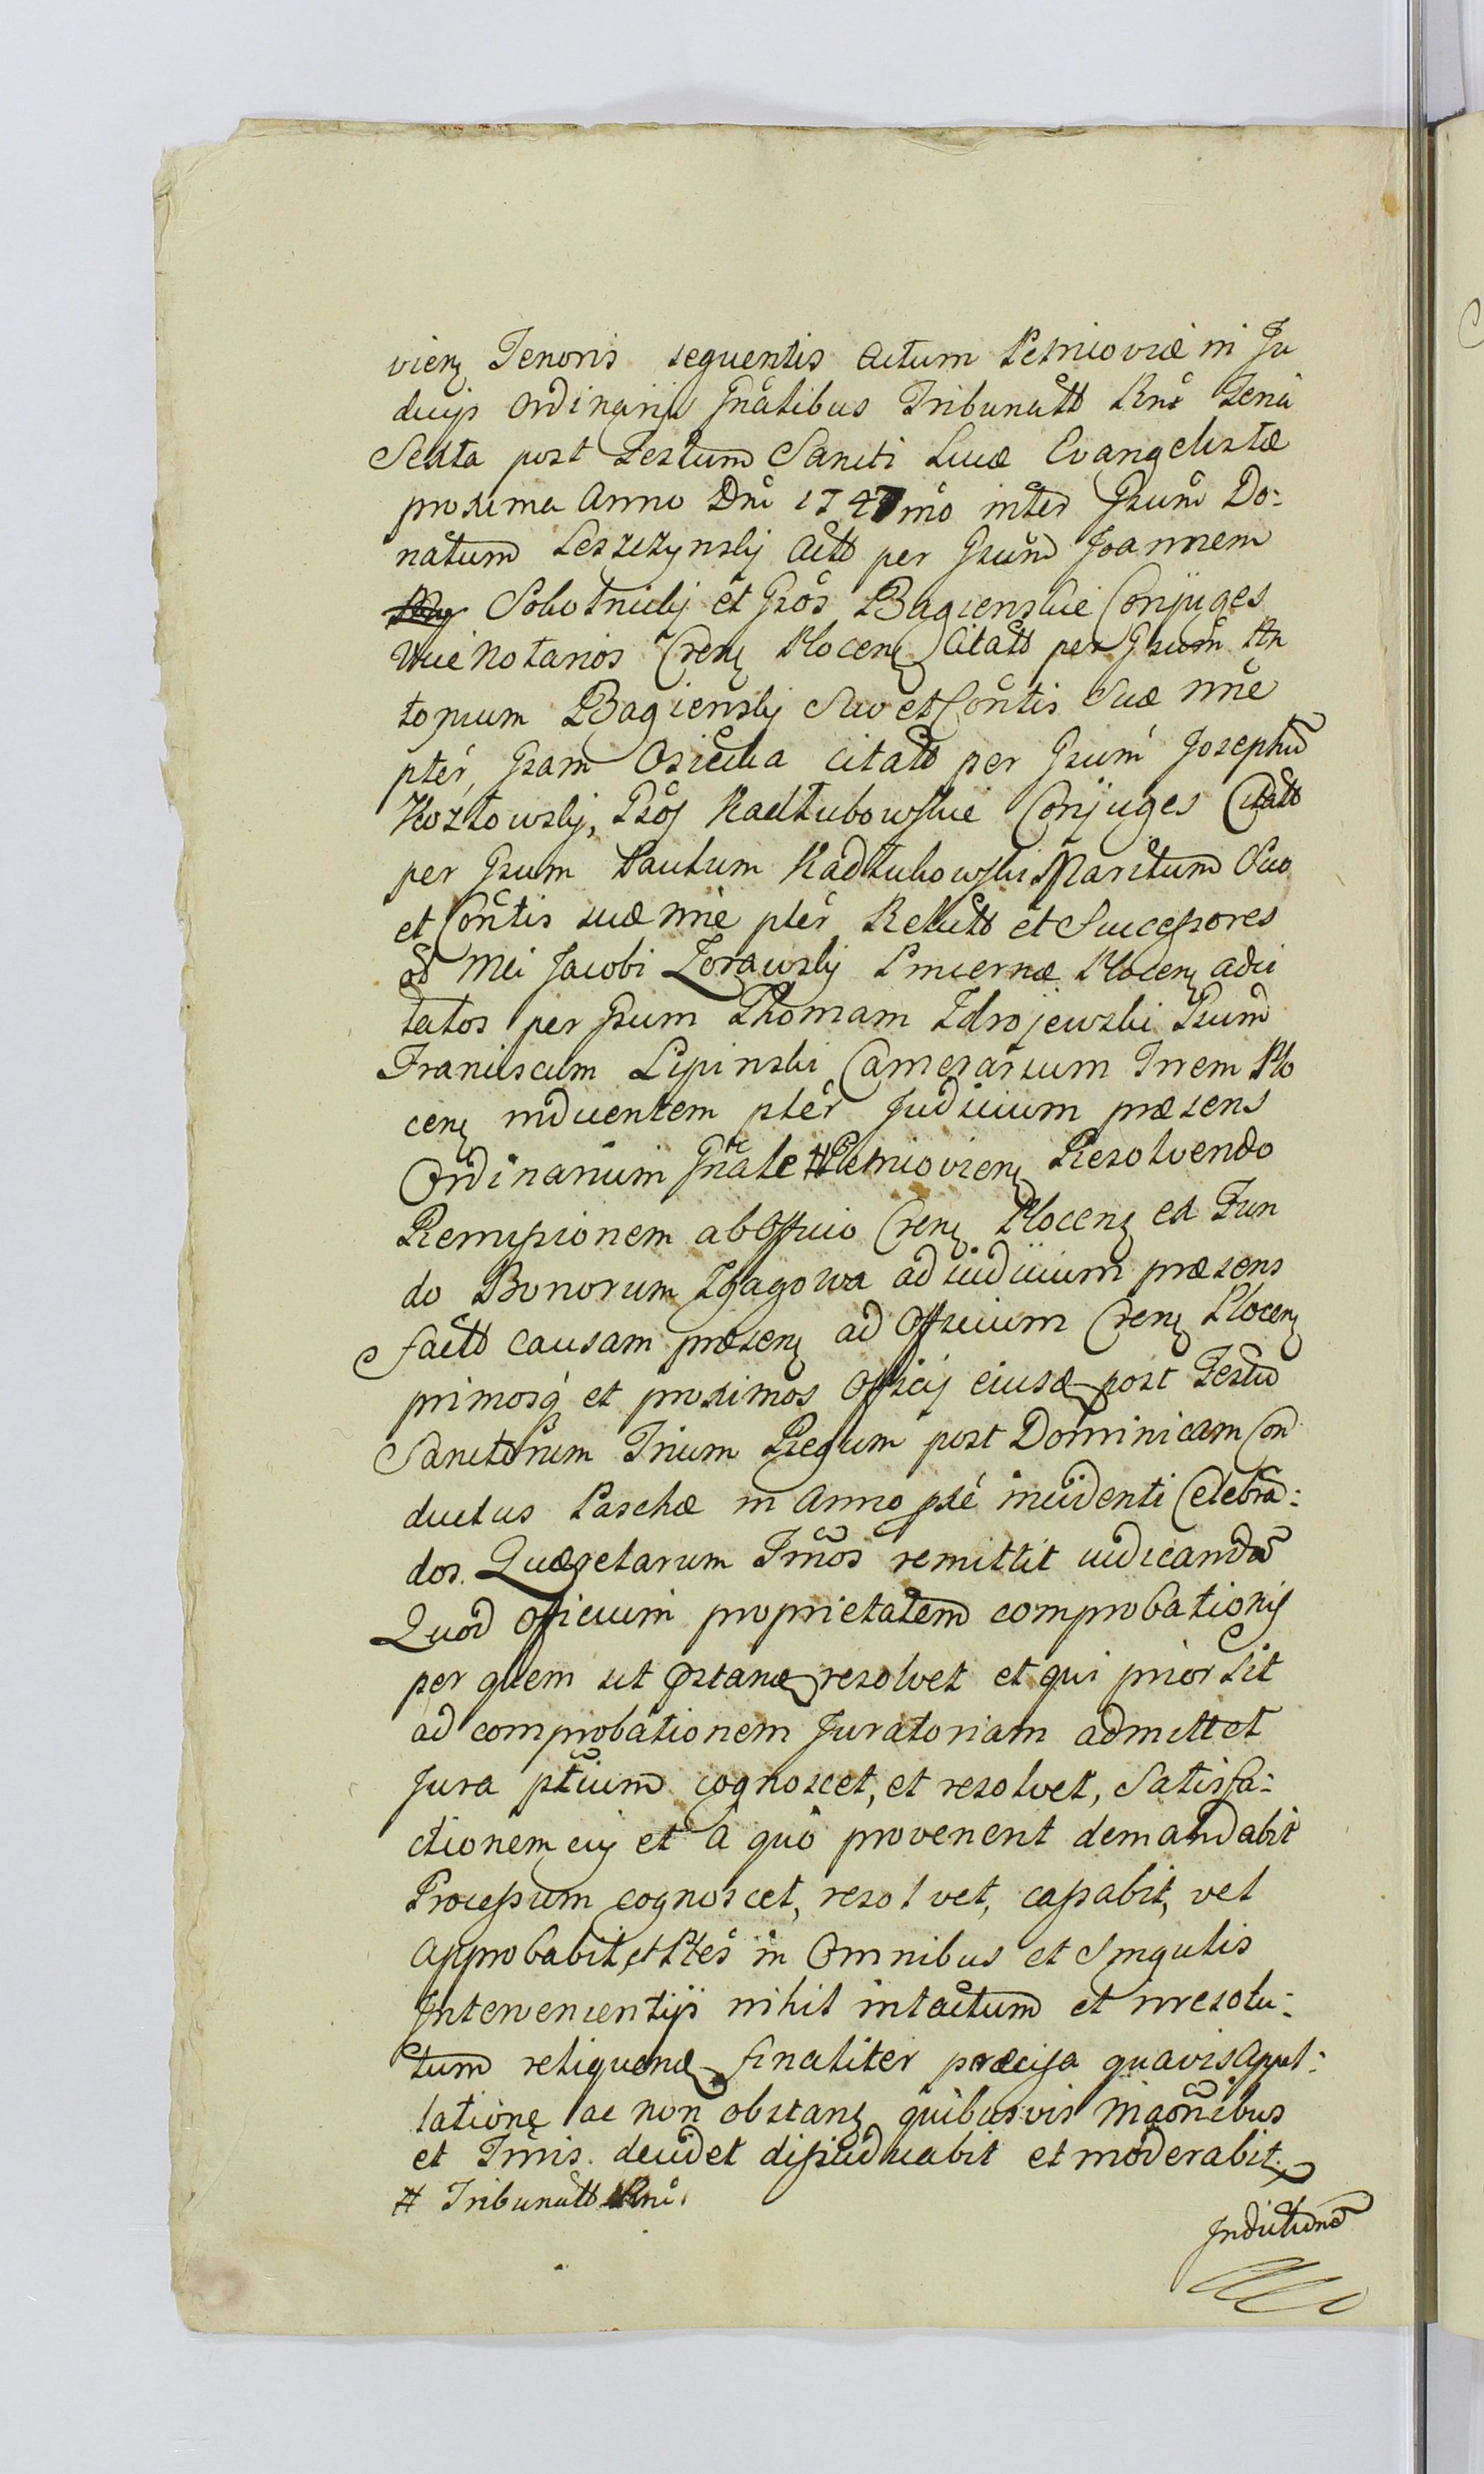 vien Tenoris sequentis Actum Petricoviæ in Ju
dicijs Ordinarijs Gnãlibus Tribunałtt Rni Feria
Sexta post Festum Sancti Lucæ Evangelistæ
proxima Anno Dni 1747mo inter Gsum Do:
natum Leszczynsky Actt per Gsum Joannem
Sobotnicky et Gsos Bagienskie Conjuges
Notarios Cren Plocen Citatt per Gsum An
tonium Bagiensky Suo et Contis Suæ nne
pter, Gsam Osiecka citatt per Gsum Josephu
Kozłowsky, Gsos Kadłubowskie Conjuges Citatt
per Gsum Paulum Kadłubowski Maritum Suo
et Contis suæ nne pter Relutt et Successores
od Mci Jacobi Zorawsky Pincernæ Plocen adci
tatos per Gsum Thomam Zdrojewski Gsum
Franciscum Lipinski Camerarium Trrem Plo
cen inducentem pter Judicium præsens
Ordinarium Gnãle # Petricovien Resolvendo
Remissionem ab Officio Cren Plocen ex Fun
do Bonorum Zgagowa ad iudicium præsens
factt causam præsen ad Officium Cren Plocen
primosq et proximos Officij eiusd post Festu
Sanctorum Trium Regum post Dominicam Con
ductus Paschæ in Anno pte incidenti Celebra:
dos. Querelarum Tmos remittit iudicanda
Quod Officium proprietatem comprobationis
per quem sit præstan resolvet et qui prior sit
ad comprobationem Juratoriam admittet
Jura ptium cognoscet, et resolvet, Satisfa:
ctionem cuj et à quo provenent demandabit
Processum cognoscet, resolvet, cassabit, vel
Approbabit, et Ptes in Omnibus et Singulis
Intervenientijs nihil intactum et irresolu:
tum relinquen finaliter præcisa quavis Appel:
latione ac non obstan quibusvis Inhaonibus
et Tmis. decidet dijudicabit et moderabit.
# Tribunałtt Rni.
Inductione